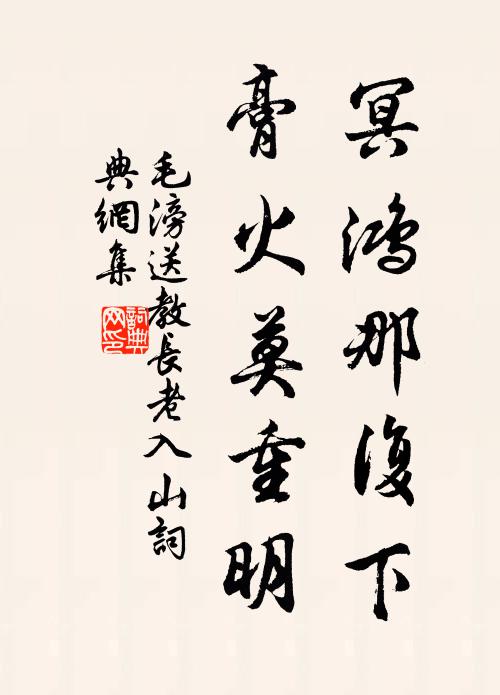 冥鴻那復下
膏火莫重明
毛滂送教長老入山詞
典網集
詞典
网印